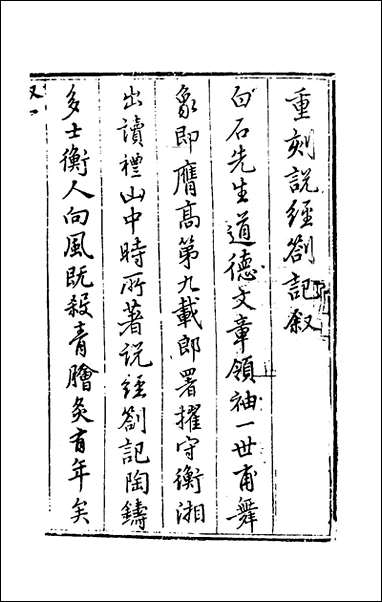 重刻說經劄記叙
白石先生道德文章領袖一世甫舞
象即膺高第九載郎署擢守衡湘
出讀禮山中時所著說經劄記陶鑄
多士衡人向風既殺青膾炙有年矣
叙一